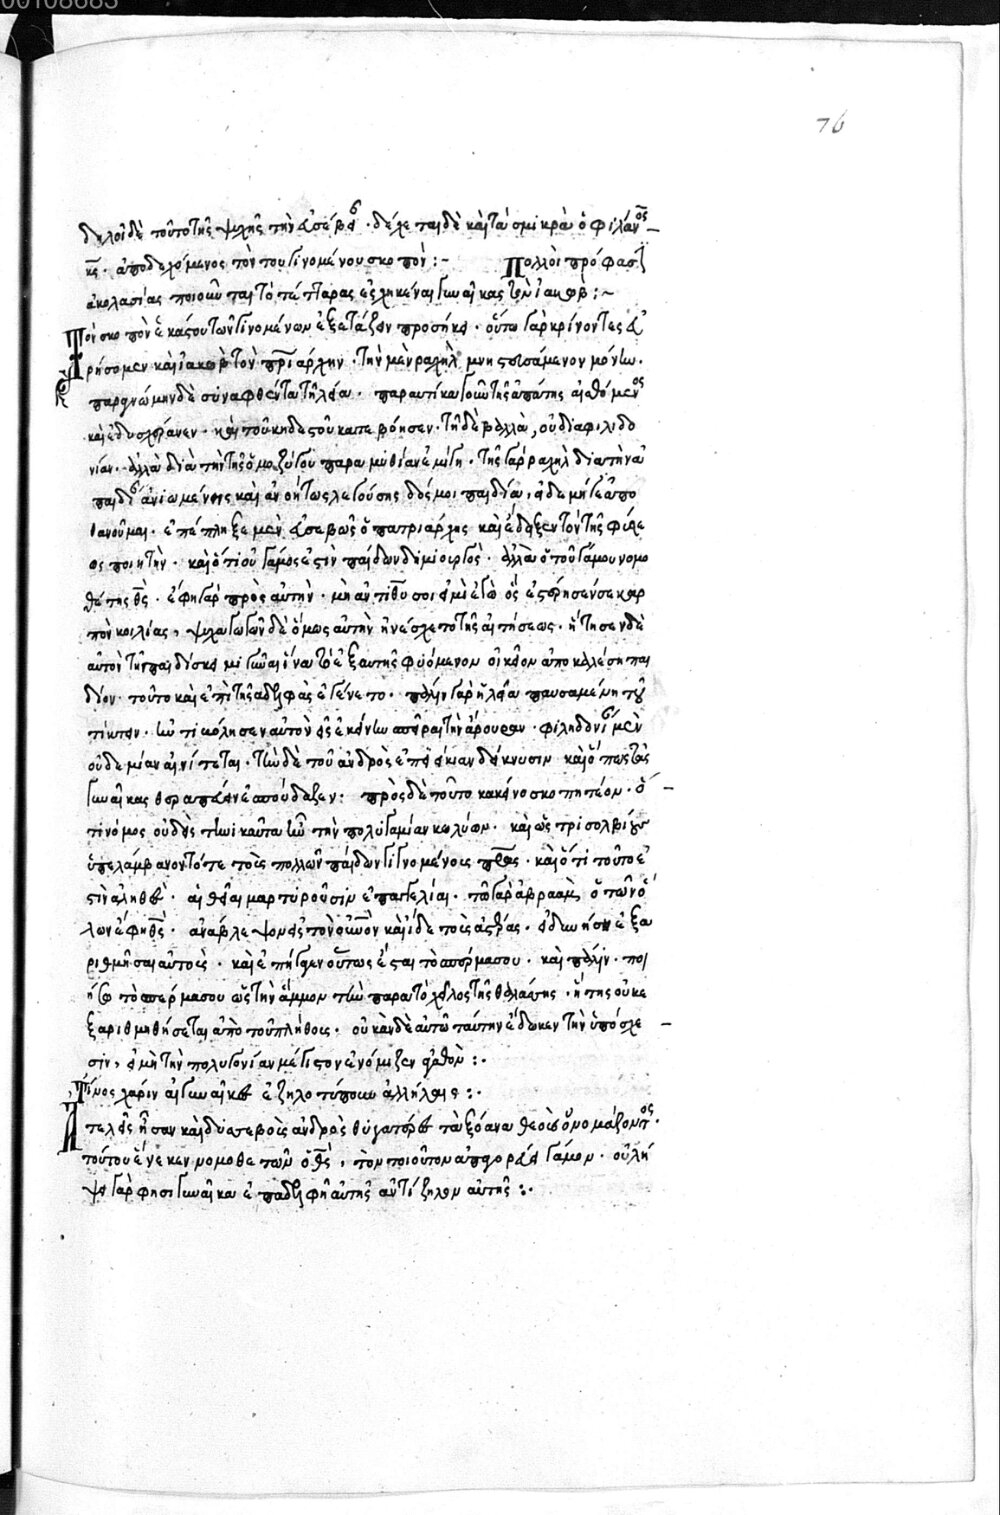 76
δηλοῖ δὲ τοῦτο τῆς ψυχῆς τὴν εὐσέβειαν · δέχεται δὲ καὶ τὰ σμικρὰ ὁ φιλάνος
κς · ἀποδεχόμενος τὸν του γινομένου σκοπόν :~ Πολλοὶ πρόφασιν
ἀκολασίας ποιοῦνται τὸ τέτταρας ἐσχηκέναι γυναῖκας τὸν ἰακώβ :~
Τὸν σκοπὸν ἑκάστου τῶν γινομένων ἐξετάζειν προσήκει · οὕτω γὰρ κρίνοντες εὑ
ρήσομεν καὶ ἰακὼβ τὸν πριάρχην · τὴν μὲν ραχὴλ μνηστευσάμενον μόνην ·
παρα γνώμην δὲ συναφθέντα τῇ λεία · παραυτίκα γοῦν τῆς ἀπάτης αἰσθόμενος
καὶ ἐδυσχέρανεν · καὶ τοῦ κηδεστοῦ κατεβόησεν · τῇ δὲ βαλλὰ, οὐ δια φιληδο
νίαν · ἀλλὰ διὰ τὴν τῆς ὁμοζύγου παραμυθίαν ἐμίγη · τῆς γὰρ ραχὴλ διὰ τὴν ἀ
παιδίαν ἀνιωμένης καὶ ἀνοήτως λεγούσης δός μοι παιδία, εἰ δε μήγε ἀπο
θανοῦμαι · ἐπέπληξε μὲν εὐσεβῶς ὁ πατριάρχης καὶ ἔδειξεν τὸν τῆς φύσε
ως ποιητήν · καὶ ὅτι οὐ γάμος ἐστὶν παίδων δημιουργὸς · ἀλλὰ ὁ τοῦ γάμου νομο
θέτης θς · ἔφη γὰρ πρὸς αὐτὴν · μὴ ἀντὶ θυ σοι εἰμὶ ἐγὼ ὃς ἐστέρησέν σε καρ
πὸν κοιλίας, ψυχαγωγῶν δὲ ὅμως αὐτὴν ἠνέσχετο τῆς αἰτήσεως · ἤτησεν δὲ
αὐτὸν τῇ παιδίσκῃ μιγῆναι ἵνα τὸ ἐξ αυτῆς φυόμενον οἰκεῖον ἀποκαλέσῃ παι
δίον · τοῦτο καὶ ἐπὶ τῆς ἀδελφᾶς ἐγένετο · πάλιν γὰρ ἡ λεία παυσαμένη τοῦ
τίκτειν · ἠντιβόλησεν αὐτὸν εἰς ἐκείνην σπεῖραι τὴν ἄρουραν · φιληδονίαν μὲν
οὐδεμίαν αἰνίττεται · τὴν δὲ τοῦ ἀνδρὸς ἐπιείκειαν δείκνυσιν καὶ ὅπως τὰς
γυναῖκας θεραπεύειν ἐσπούδαζεν : πρὸς δὲ τοῦτο κακεῖνο σκοπητέον · ὅ
τι νόμος οὐδεὶς τηνικαῦτα ἦν τὴν πολυγαμίαν κωλύων · καὶ ὡς τρισολβίους
ὑπελάμβανον τότε τοὺς πολλῶν παίδων γιγνομένους πρας · καὶ ὅτι τοῦτο ἐ
στὶν ἀληθὲς · αἱ θεῖαι μαρτυροῦσιν ἐπαγγελίαι · τῶ γὰρ ἀβραὰμ, ὁ τῶν ὅ
λων ἔφη θς · ἀνάβλεψον εἰς τὸν οὐνον καὶ ἴδε τοὺς ἀστέρας · εἰ δυνήσῃ ἐξα
ριθμῆσαι αὐτοὺς · καὶ ἐπήγαγεν οὕτως ἔσται τὸ σπέρμα σου · καὶ πάλιν · ποι
ήσω τὸ σπέρμα σου ὡς τὴν ἄμμον τὴν παρα τὸ χεῖλος τῆς θαλάσσης · ἥτις οὐκ ἐ
ξαριθμηθήσεται ἀπὸ τοῦ πλήθους · οὐκ ἂν δὲ αὐτῶ ταύτην ἔδωκεν τὴν ὑπόσχε
σιν, εἰ μὴ τὴν πολυγονίαν μέγιστον ἐνόμιζεν ἀγαθὸν :·
Τίνος χάριν αἱ γυναῖκες ἐζηλοτύπουν ἀλλήλαις :·
Ἀτελεῖς ἦσαν καὶ δυσσεβοῦς ἀνδρὸς θυγατέρες τὰ ξόανα θεοὺς ὀνομάζοντος ·
τούτου ἕνεκεν νομοθετῶν ὁ θς, τὸν τοιοῦτον ἀπαγορεύει γάμον · οὐ λή
ψει γάρ φησι γυναῖκα ἐπ ἀδελφῇ αὐτῆς ἀντίζηλον αὐτῆς :·